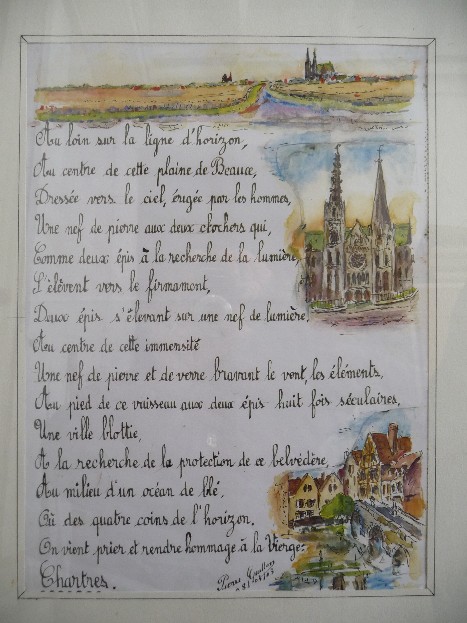 Au loin sur la ligne d'horizon,
Au centre de cette plaine de Beauce,
Dressée vers le ciel, érigée par les hommes,
Une nef de pierre aux deux clochers qui,
Comme deux épis à la recherche de la lumière,
S'élèvent vers le firmamont,
Deux épis s'élevant sur une nef de lumière,
Au centre de cette immensité
Une nef de pierre et de verre bravant le vent, les éléments,
Au pied de ce vaisseau aux deux épis huit fois séculaires,
Une ville blottie,
A la recherche de la protection de ce belvédère,
Au milieu d'un océan de blé,
Où des quatre coins de l'horizon.
On vient prier et rendre hommage à la Vierge:
Chartres.
Pierre